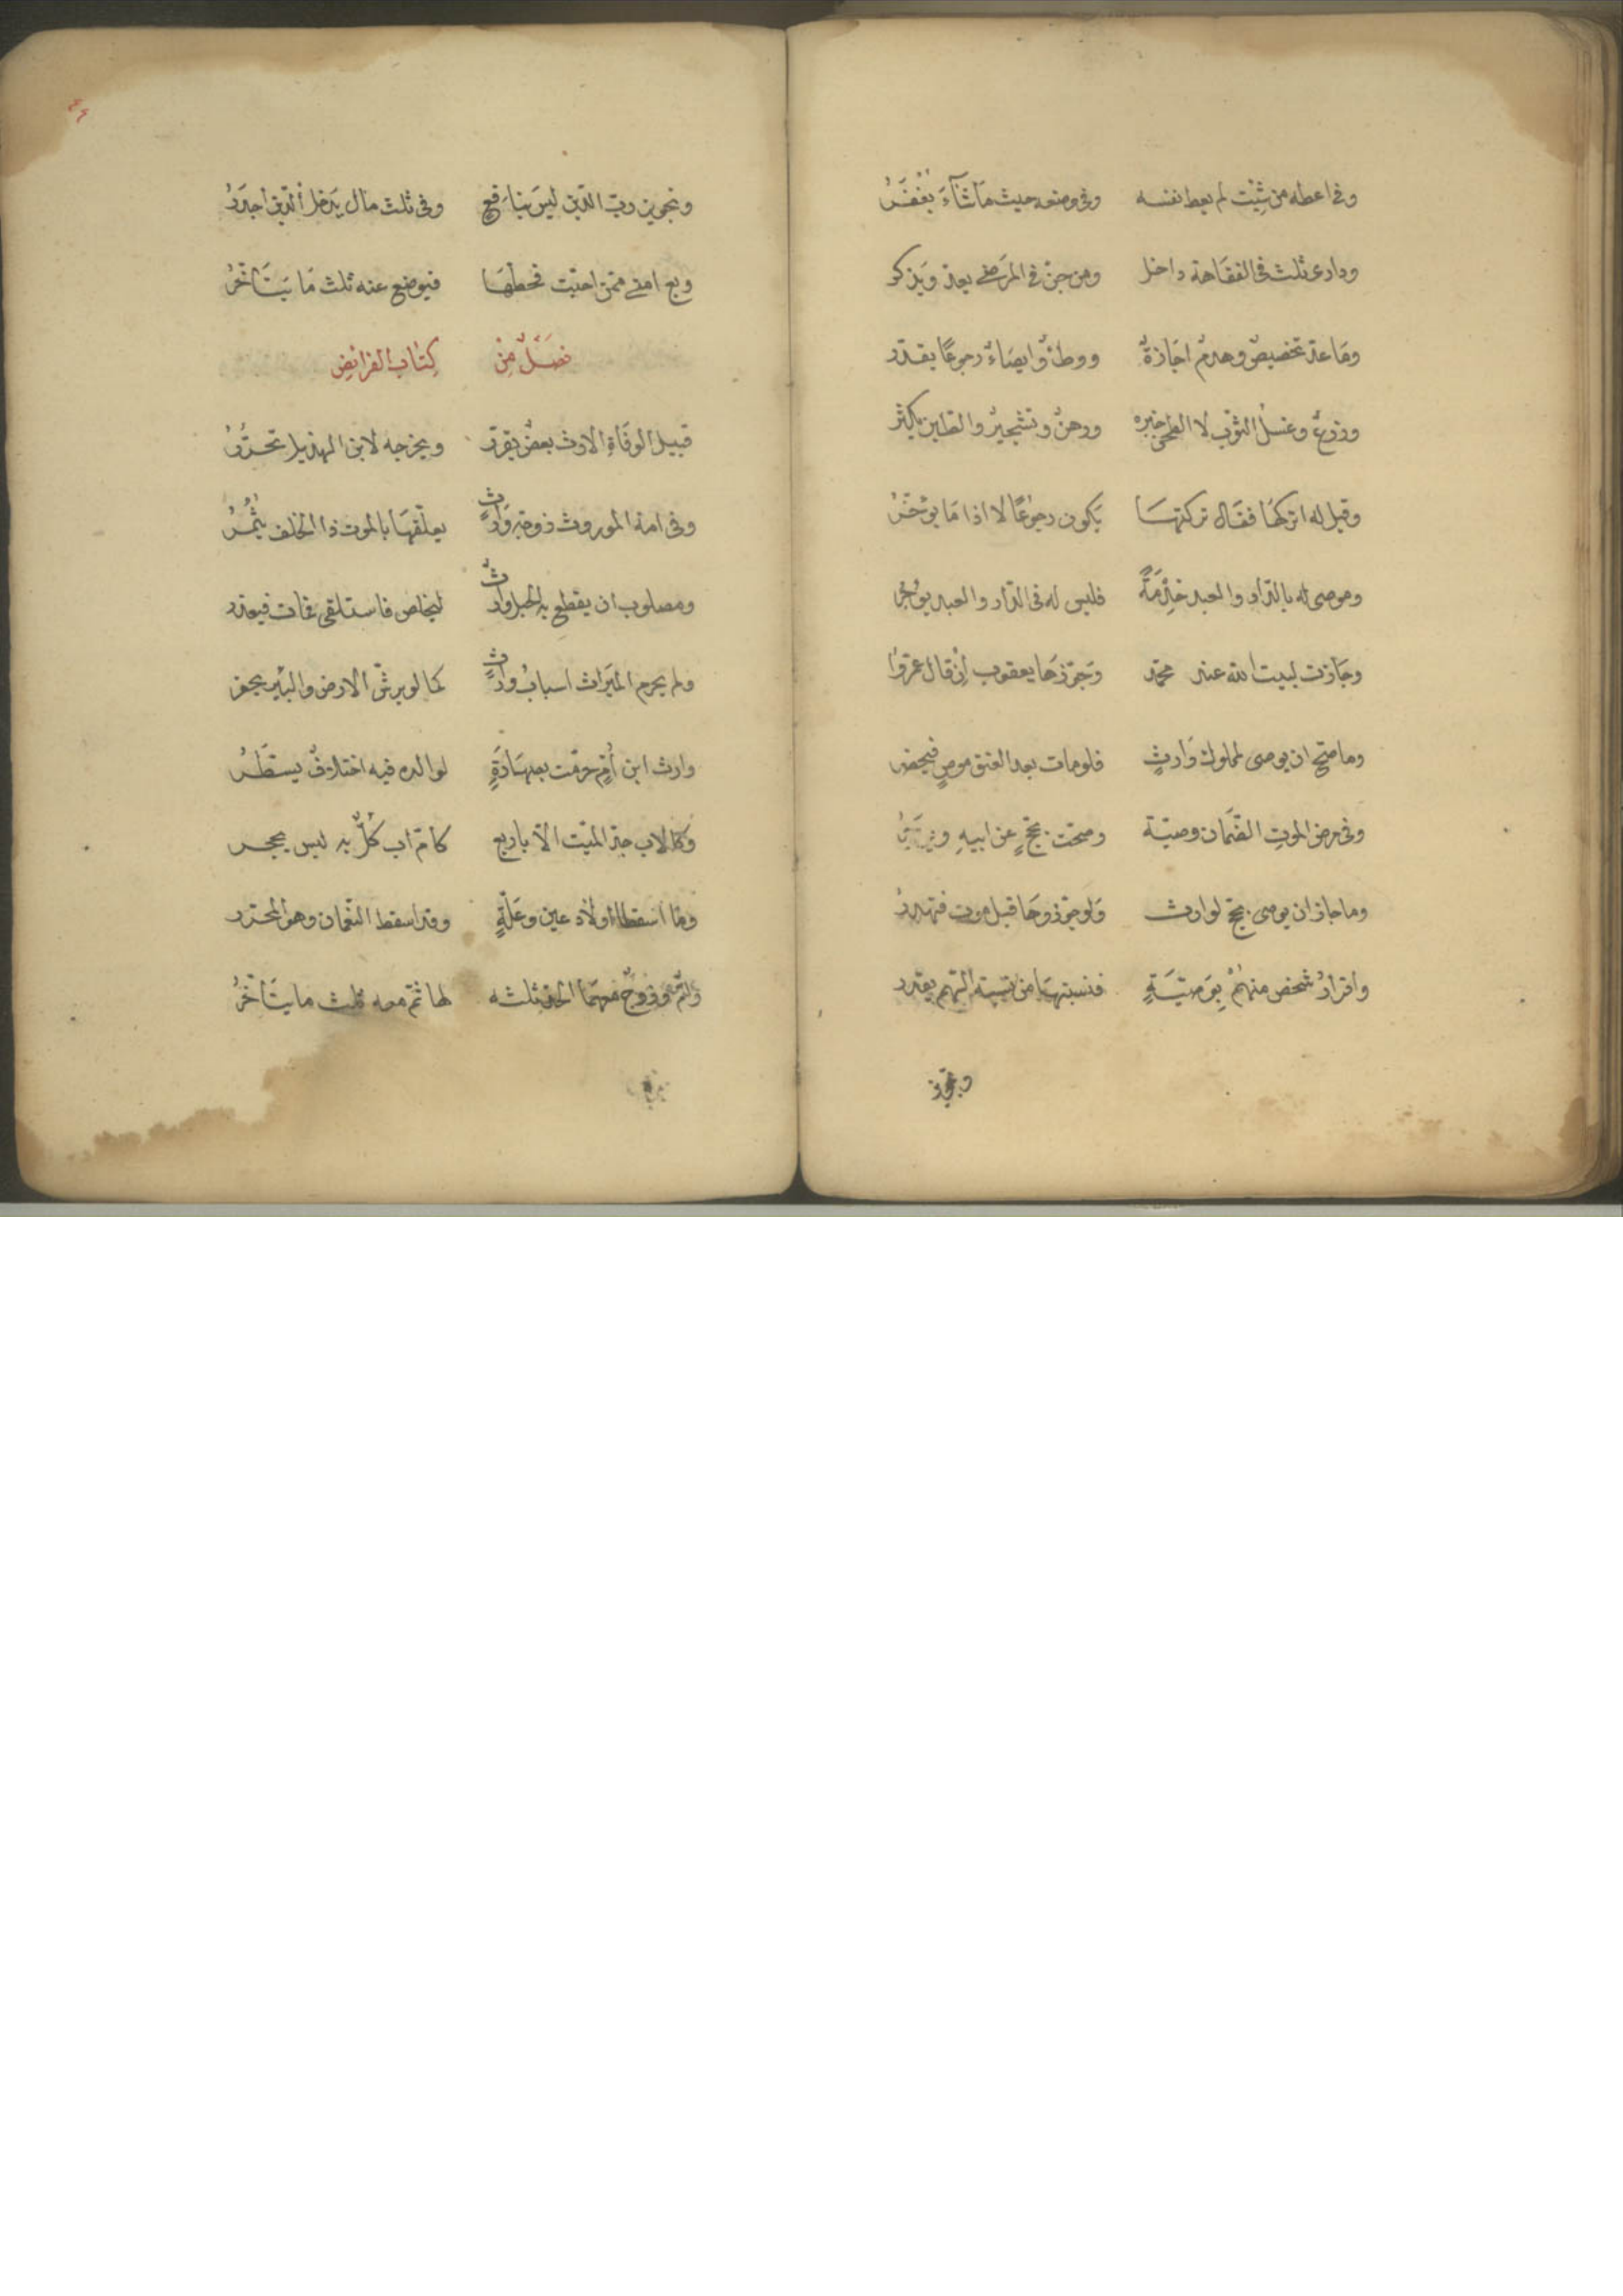 وفي اعطه من شيت لم يعط نفسه وفي وضعه حيث ماشاء يغفر
ودارى ثلث في الفقاهة داخل ومن جن في المرضى يعد ويذكر
وماعد تخصيص وهدم اجازة ووطئ وايصاء رجوعا يقدر
وزرع وغسل الثوب لا الطحن خبره ورهن وتشجير والتطين يكثر
وقيل له اتركها فقال تركتها يكون رجوعا لا اذا ما يؤخر
وموصى له بالدار والعبد خدمة فليس له في الدار والعبد يوجر
وجازت لبيت الله عند محمد وجوزها يعقوب ان قال عمروا
وماصح ان يوصى لمملوك وارث فلومات بعد العتق موص فيحضر
وفي مرض الموت الضمان وصية وصحت بحج عن ابيه
وماجاز ان يوصى بحج لوارث ولو جوزوها قبل موت فتهدر
واقرار شخص منهم بوصية فنسبتها من نسبة السهم يقدر
وتجويز
وتجويز رب الدين ليس بنافع وفي ثلث مال يدخل الدين اجدر
وبع امتى ممن احبت فحطها فيوضع عنه ثلث ما يتأخر
فصل من كتاب الفرائض
قبيل الوفاة الارث بعض يقرر ويخرجه لابن الهذيل تحرر
وفي امة الموروث زوجه وارث يعلقها بالموت ذا الخلف يثمر
ومصلوب ان يقطع به الحبل وارث ليخلص فاستلقى فمات فيعذر
ولم يحرم الميراث اسباب وارث كما لو يرش الارض والبير يحفر
وارث ابن ام حرمت بعهادة لوالده فيه اختلاف يسطر
وكالاب جد الميت الا باربع كام اب كل به ليس يحجر
وما اسقطا اولاد عين وعلة وقد اسقط النعمان وهو المحرر
وام وزوج لها ثم معه ثلث ما يتأخر